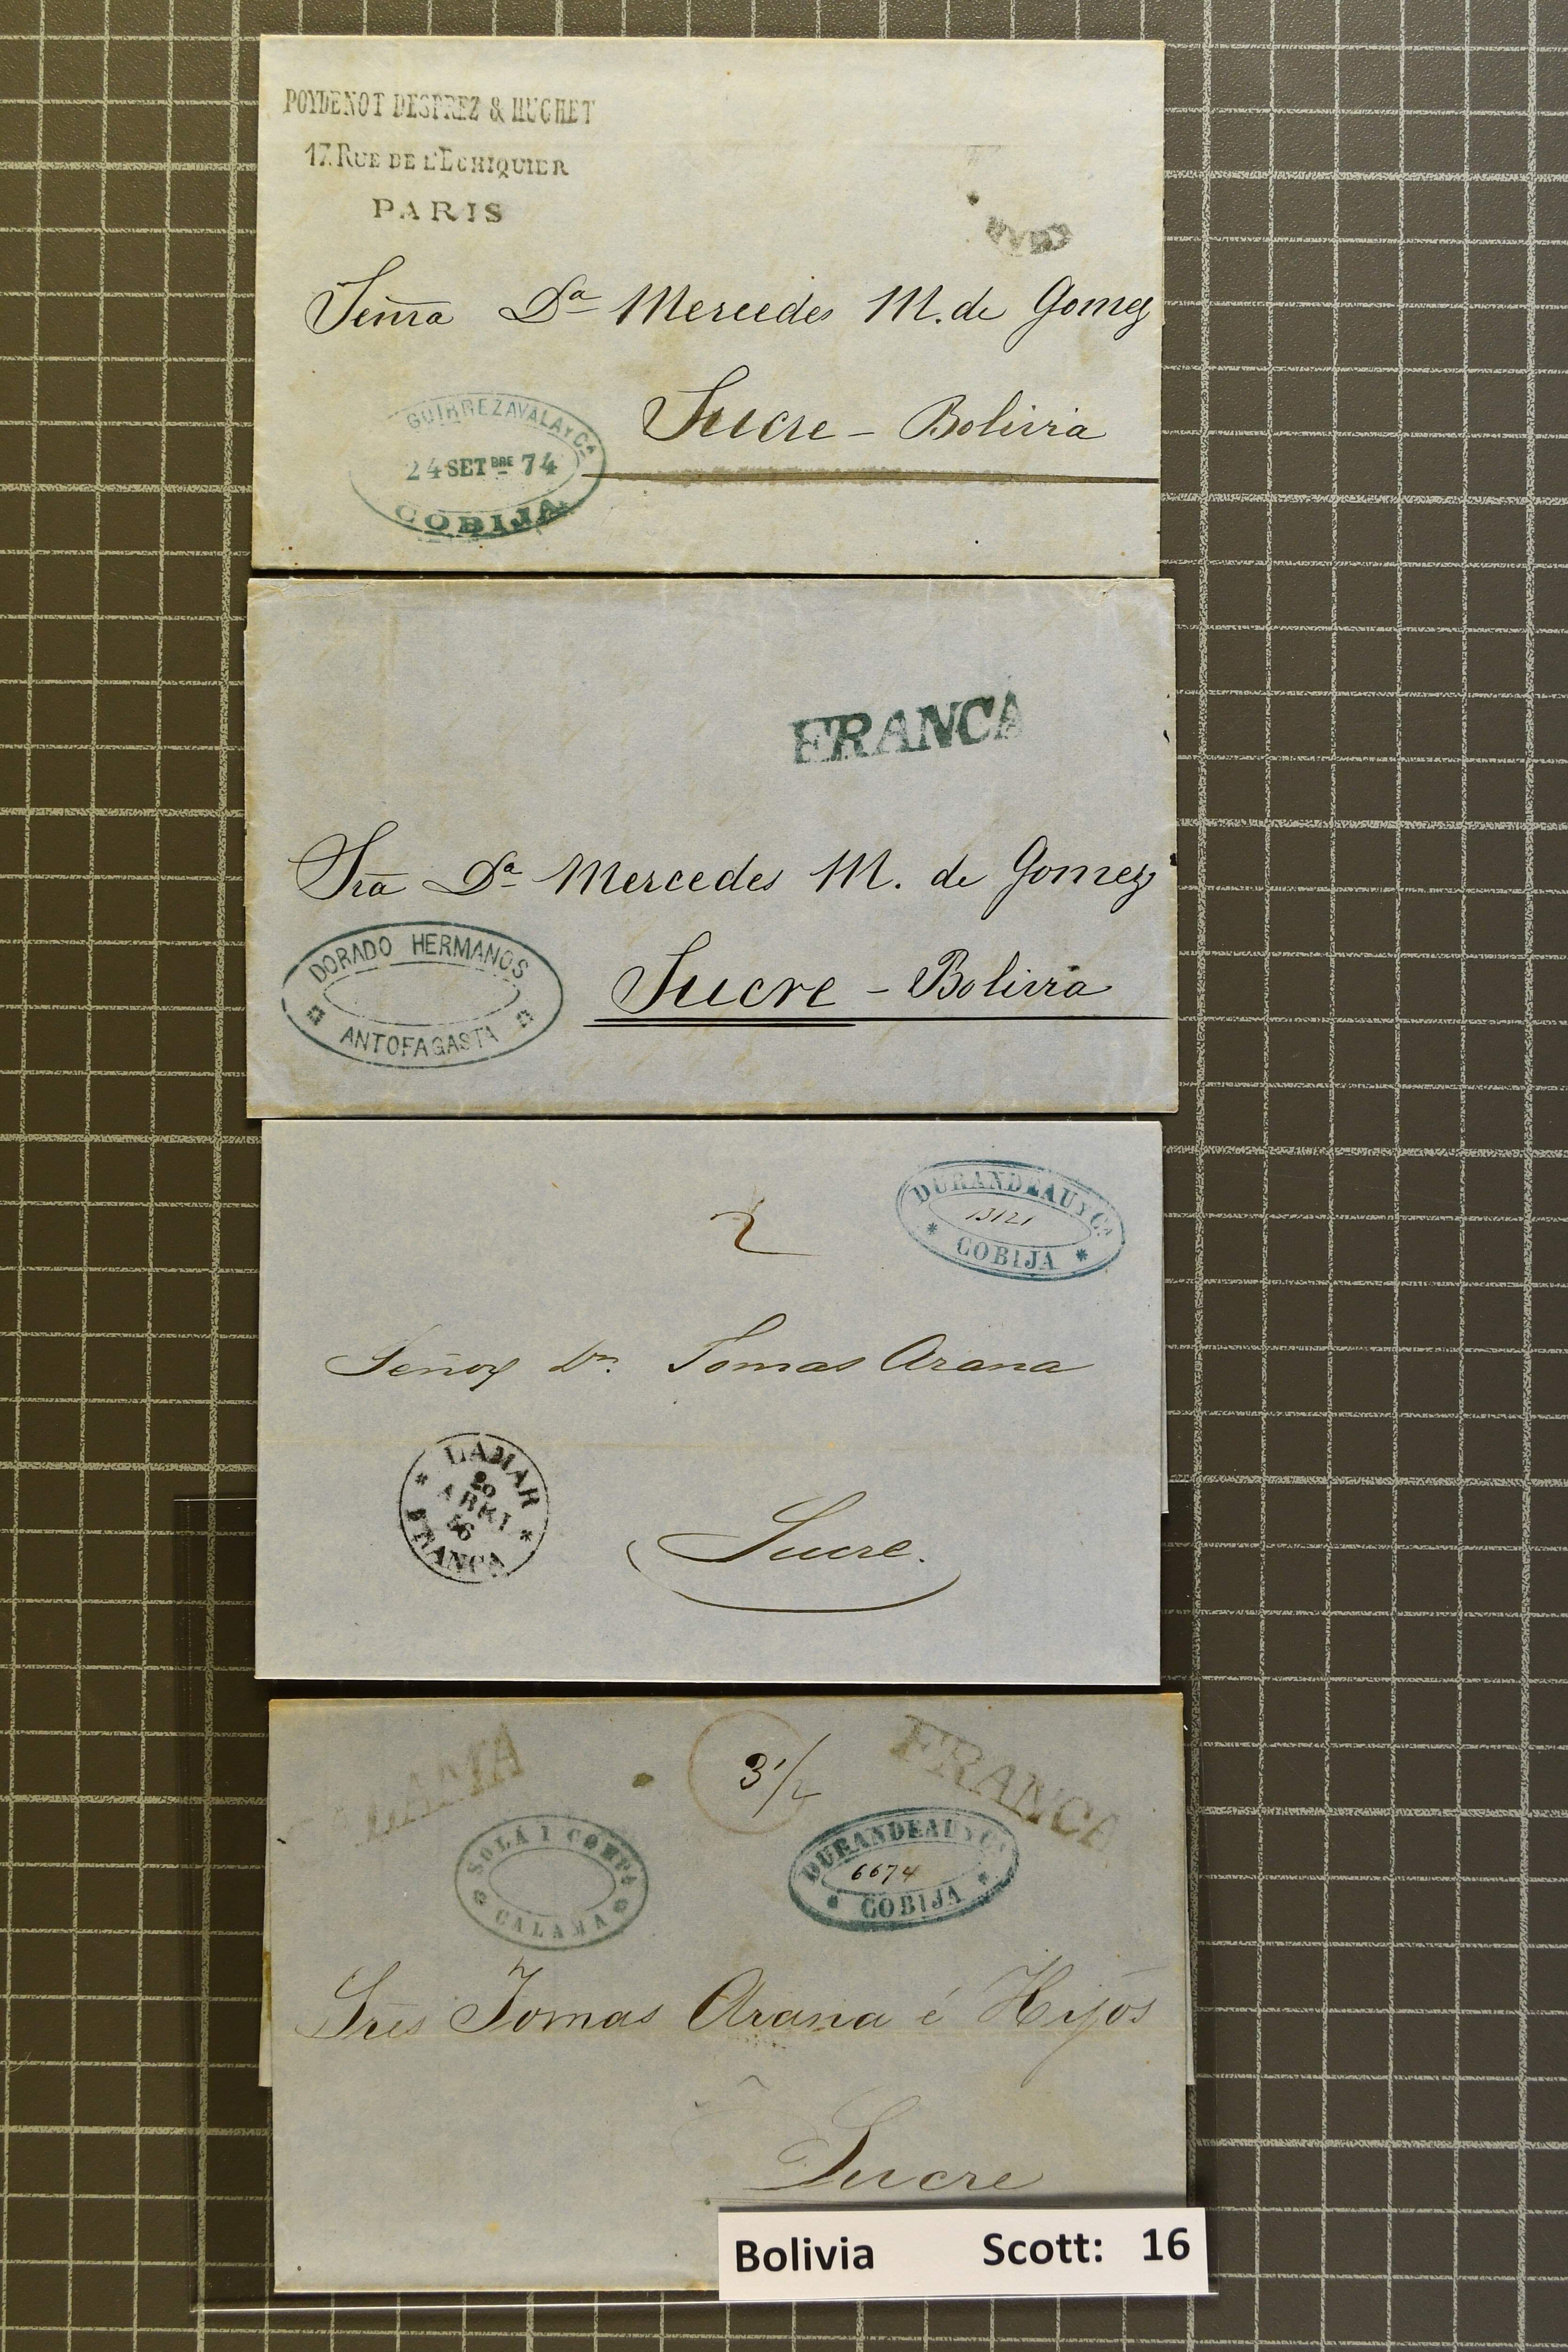 POYDENOT DESPREZ & HUCHET
17. RUE DE L'ECHIQUIER
PARIS
Señra Dª Mercedes M. de Gomez
Sucre - Bolivia
AGUIRREZAVALA Y Cª
24 SETBRE 74
COBIJA
FRANCA
Sra Dª Mercedes M. de Gomez
Sucre - Bolivia
DORADO HERMANOS
ANTOFAGASTA
DURANDEAU Y Cª
13121
COBIJA
2
Señor Dn. Tomas Arana
LAMAR
20
ABRL
56
FRANCA
Sucre.
CALAMA
3 1/2
FRANCA
SOLÁ I COMPA
CALAMA
DURANDEAU Y Cª
6674
COBIJA
Sres Tomas Arana é Hijos
Sucre
Bolivia Scott: 16